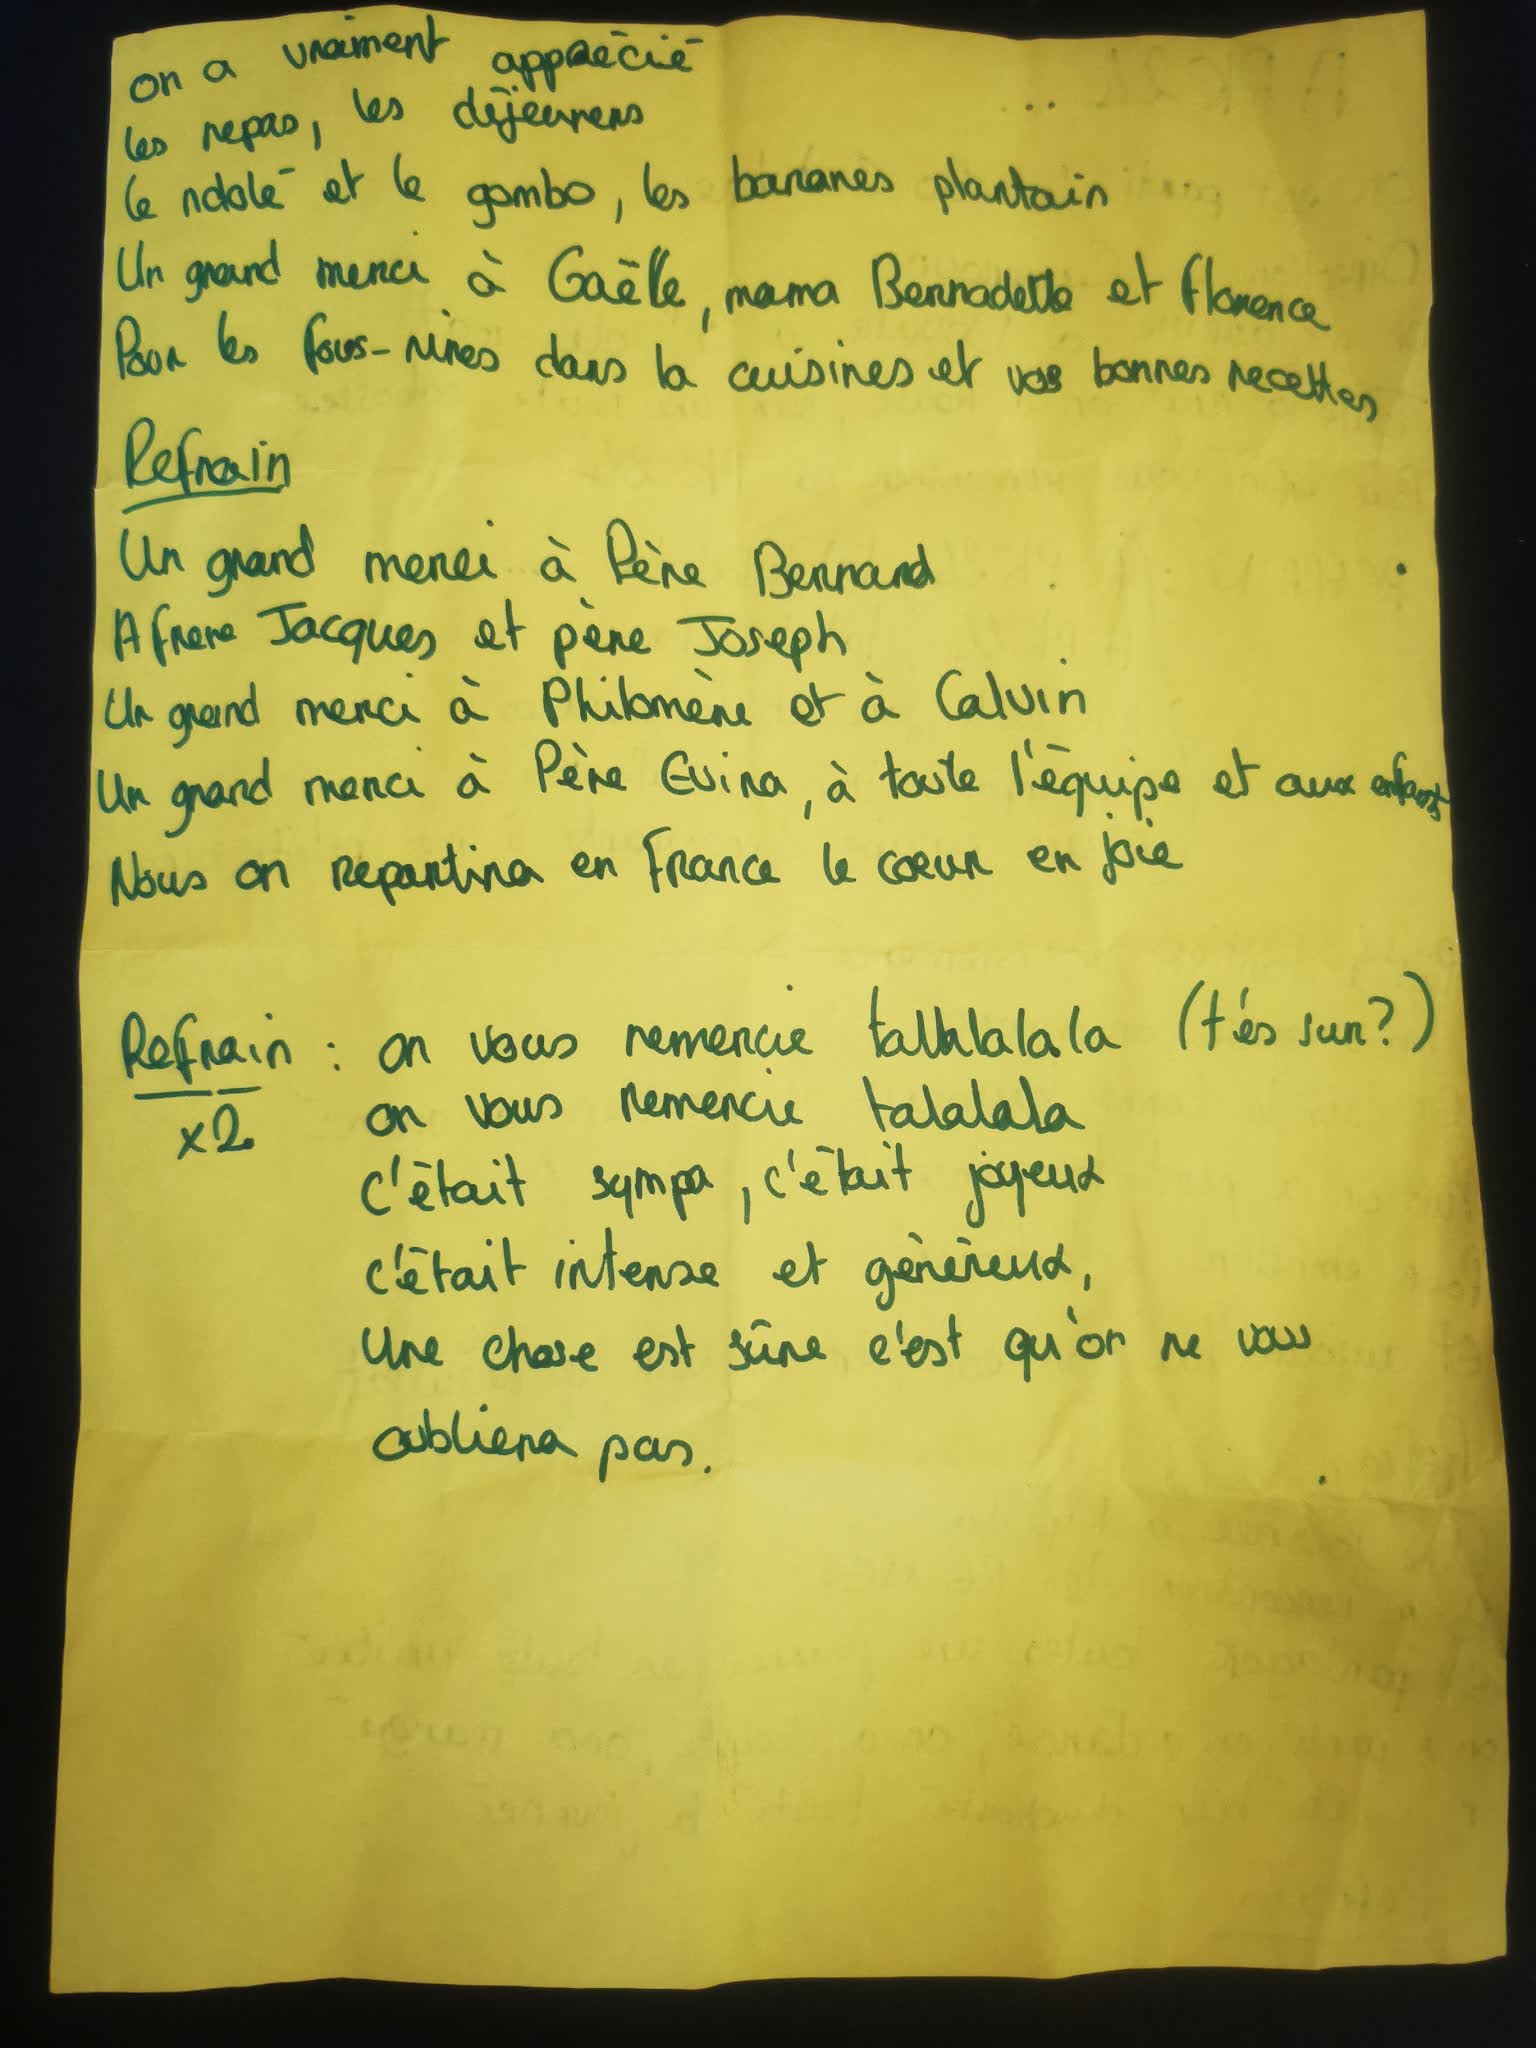 on a vraiment apprécié
les repas, les déjeuners
le ndolé et le gombo, les bananes plantain
Un grand merci à Gaëlle, mama Bernadette et Florence
Pour les fous-rires dans la cuisines et vos bonnes recettes
Refrain
Un grand merci à Père Bernard
A frere Jacques et père Joseph
Un grand merci à Philomène et à Calvin
Un grand merci à Père Evina, à toute l'équipe et aux enfants
Nous on repartira en France le coeur en joie
Refrain : on vous remercie tallalalala (t'és sur?)
x2 on vous remercie talalala
c'était sympa, c'était joyeux
c'était intense et généreux,
Une chose est sûre c'est qu'on ne vous
oubliera pas.